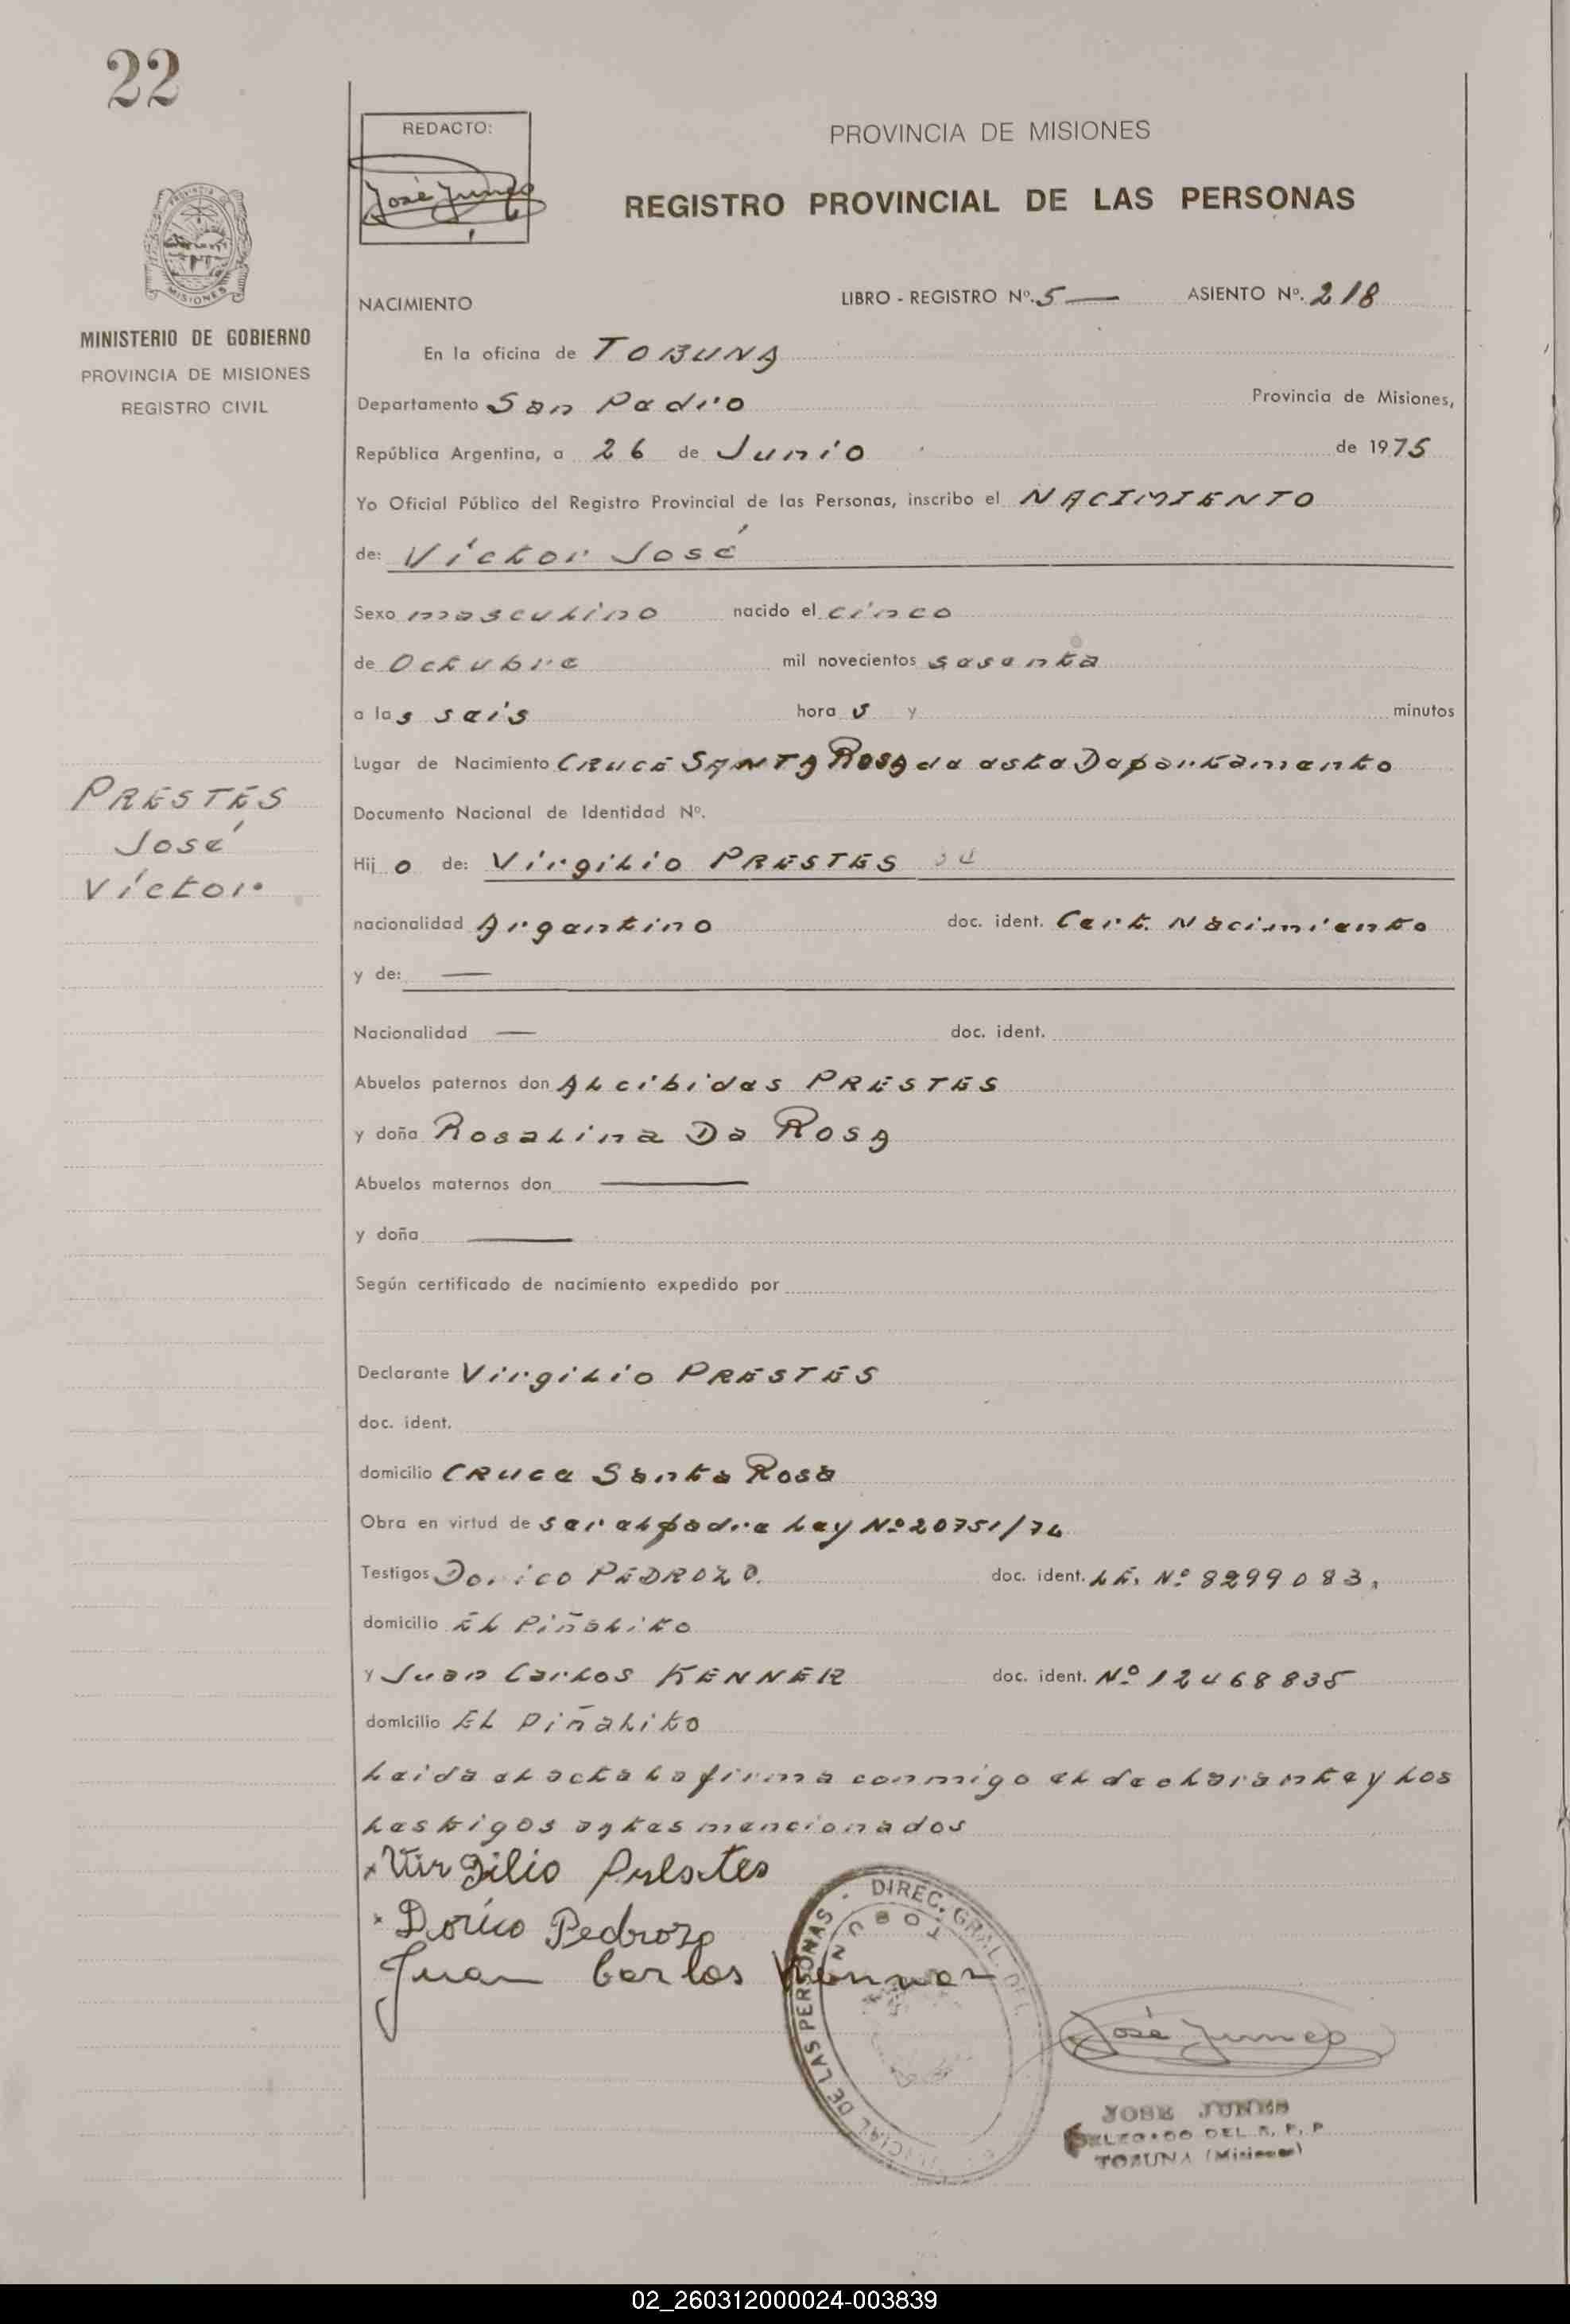 22
REDACTO:
José Junes
PROVINCIA DE MISIONES
REGISTRO PROVINCIAL DE LAS PERSONAS
MISIONES
MINISTERIO DE GOBIERNO
PROVINCIA DE MISIONES
REGISTRO CIVIL
NACIMIENTO
LIBRO - REGISTRO Nº. 5 — ASIENTO Nº. 218
En la oficina de TOBUNA
Departamento San Pedro Provincia de Misiones,
República Argentina, a 26 de Junio de 1975
Yo Oficial Público del Registro Provincial de las Personas, inscribo el NACIMIENTO
de: Víctor José
Sexo masculino nacido el cinco
de Octubre mil novecientos sesenta
a las seis hora s y minutos
Lugar de Nacimiento CRUCE SANTA ROSA de este Departamento
PRESTES
José
Víctor
Documento Nacional de Identidad Nº.
Hij o de: Virgilio PRESTES
nacionalidad Argentino doc. ident. Cert. Nacimiento
y de: —
Nacionalidad — doc. ident.
Abuelos paternos don Alcibides PRESTES
y doña Rosalina Da Rosa
Abuelos maternos don —
y doña —
Según certificado de nacimiento expedido por
Declarante Virgilio PRESTES
doc. ident.
domicilio CRUCE Santa Rosa
Obra en virtud de ser el padre Ley Nº 20751/74
Testigos Dorico PEDROZO. doc. ident. LE. Nº 8299083,
domicilio EL Piñalito
y Juan Carlos KENNER doc. ident. Nº 12468835
domicilio EL Piñalito
Leida el acta la firma conmigo el declarante y los
testigos antes mencionados
x Virgilio Prestes
x Dorico Pedrozo
Juan Carlos Kenner
DIREC. GRAL. DEL
PROVINCIAL DE LAS PERSONAS
TOBUNA
José Junes
JOSE JUNES
DELEGADO DEL R. P. P
TOBUNA (Misiones)
02_260312000024-003839